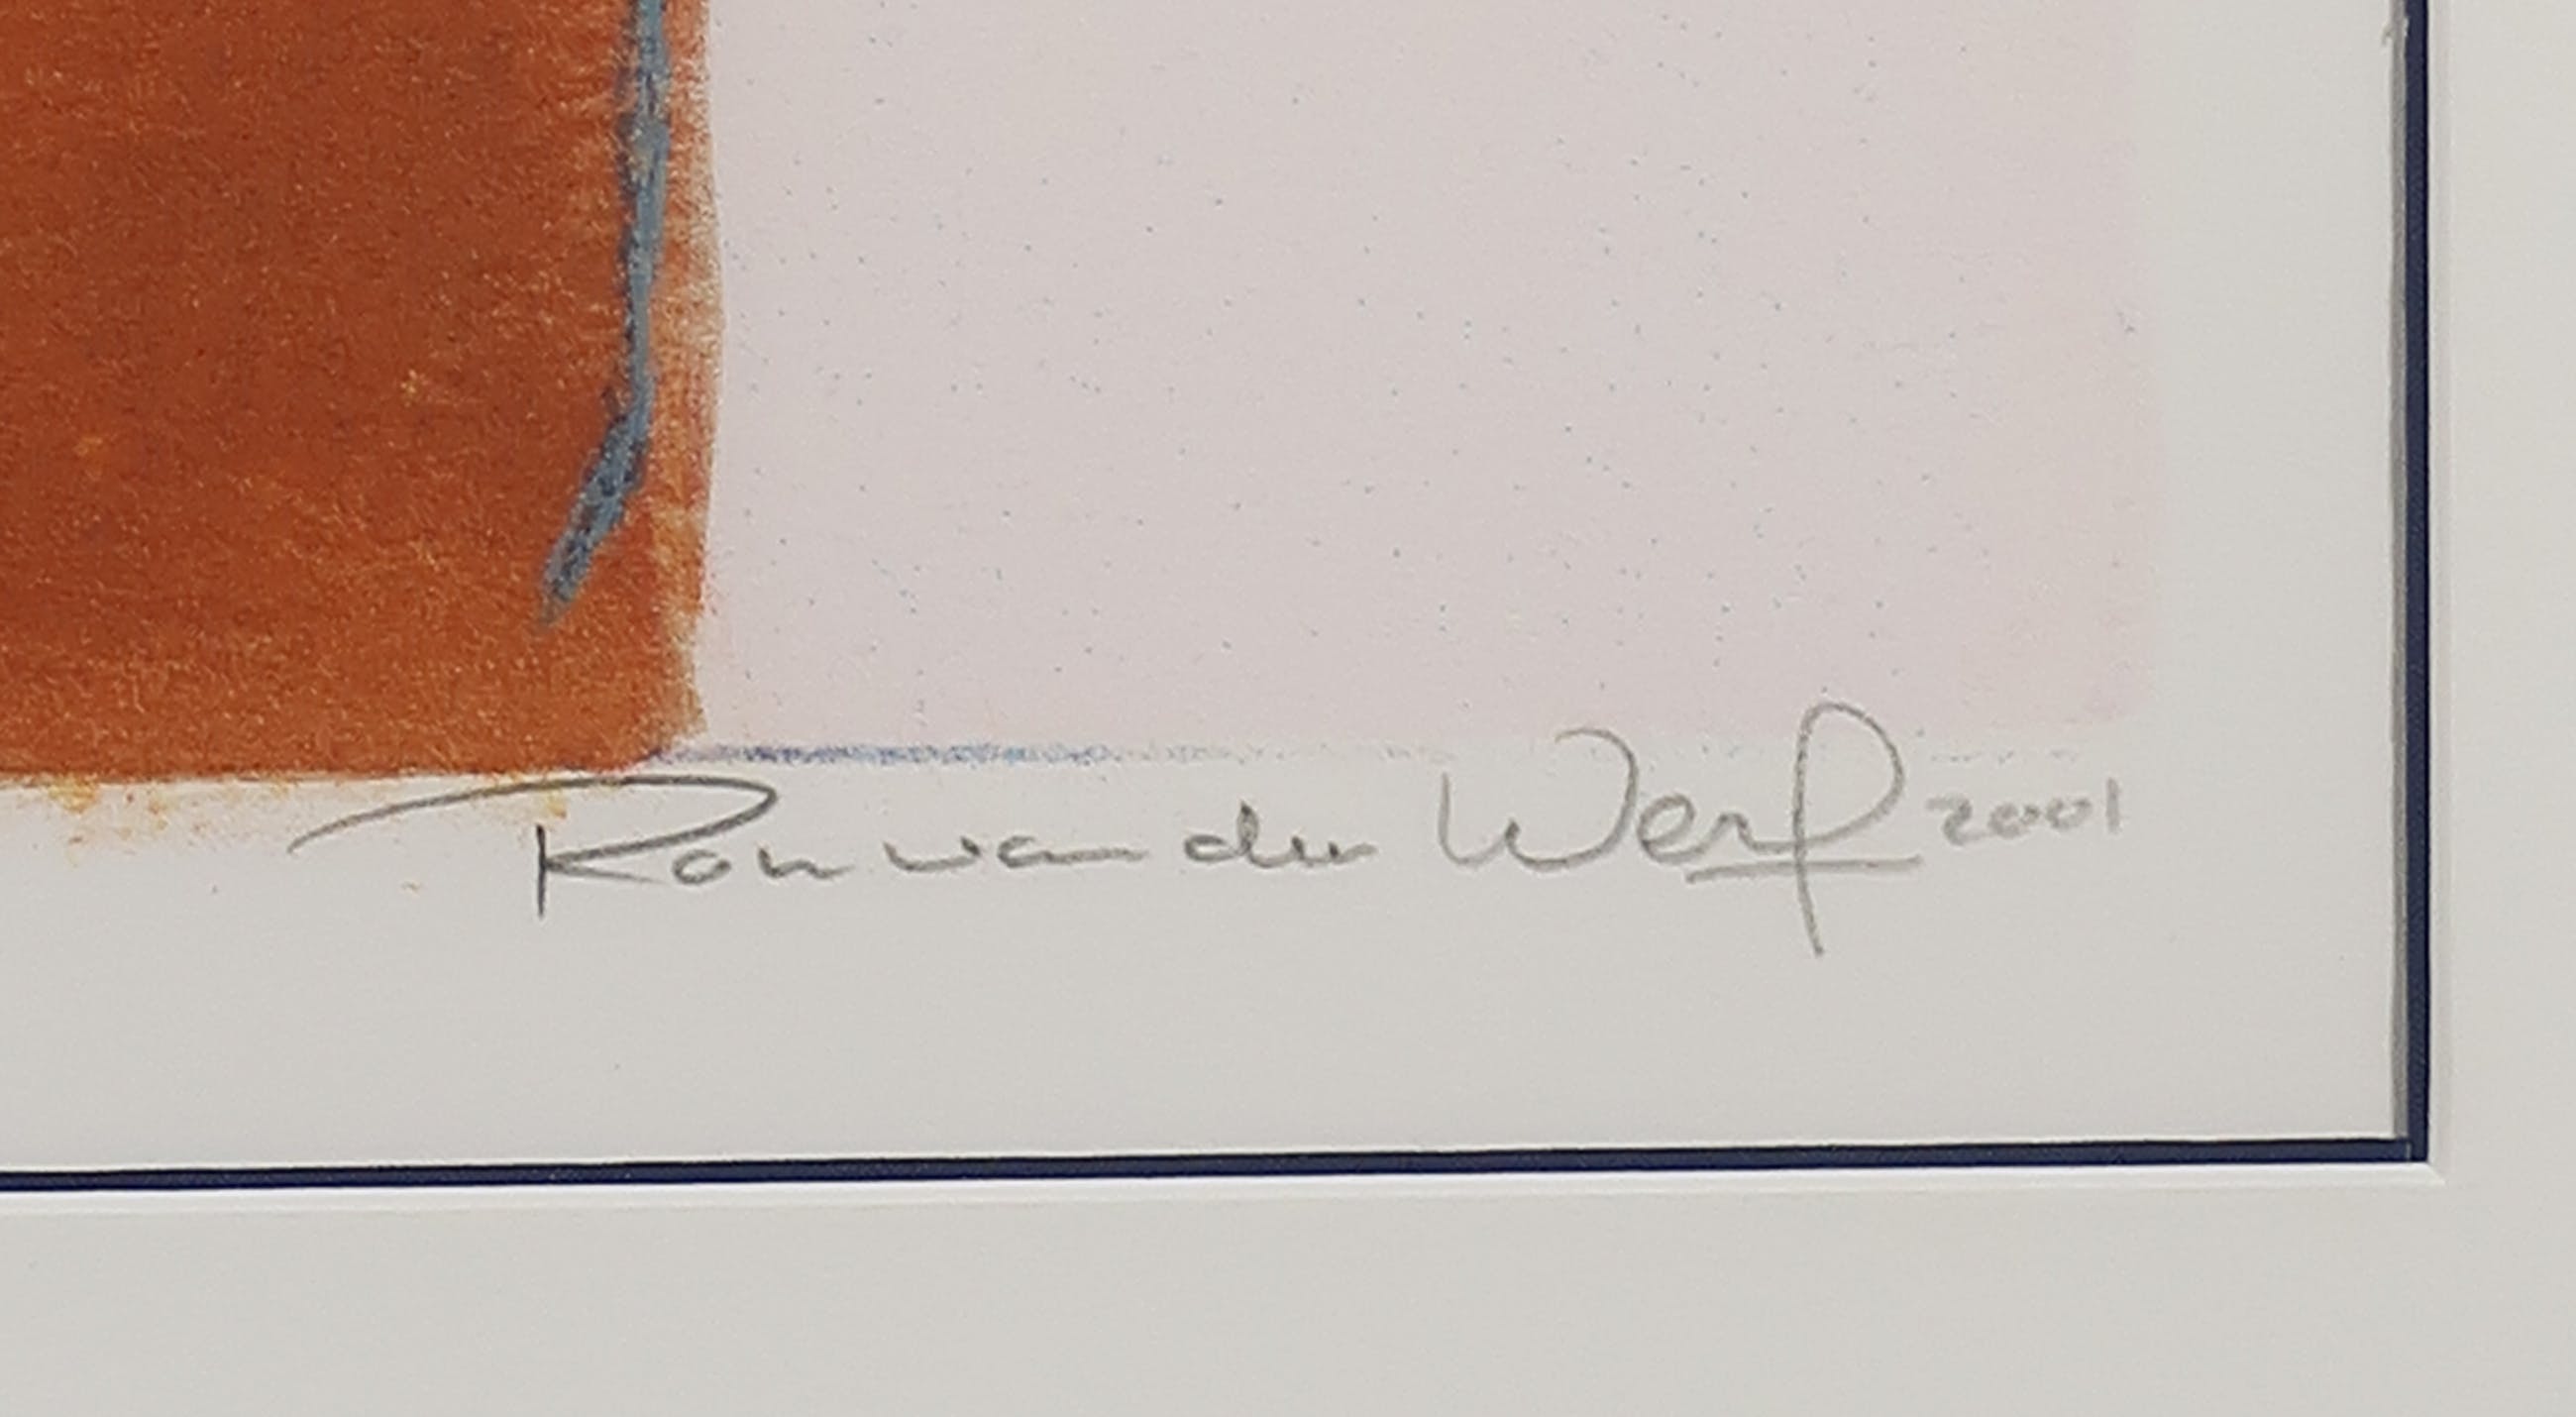 Ron van der Werf 2001